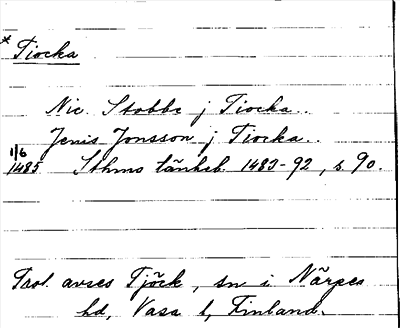 * Tiocka
Nic. Stobbe j Tiocka.
Jenis Jonsson j Tiocka.
1/6
1485 Sthms tänkeb. 1483-92, s. 90.
Trol. avses Tjöck, sn i Närpes
hd, Vasa l, Finland.